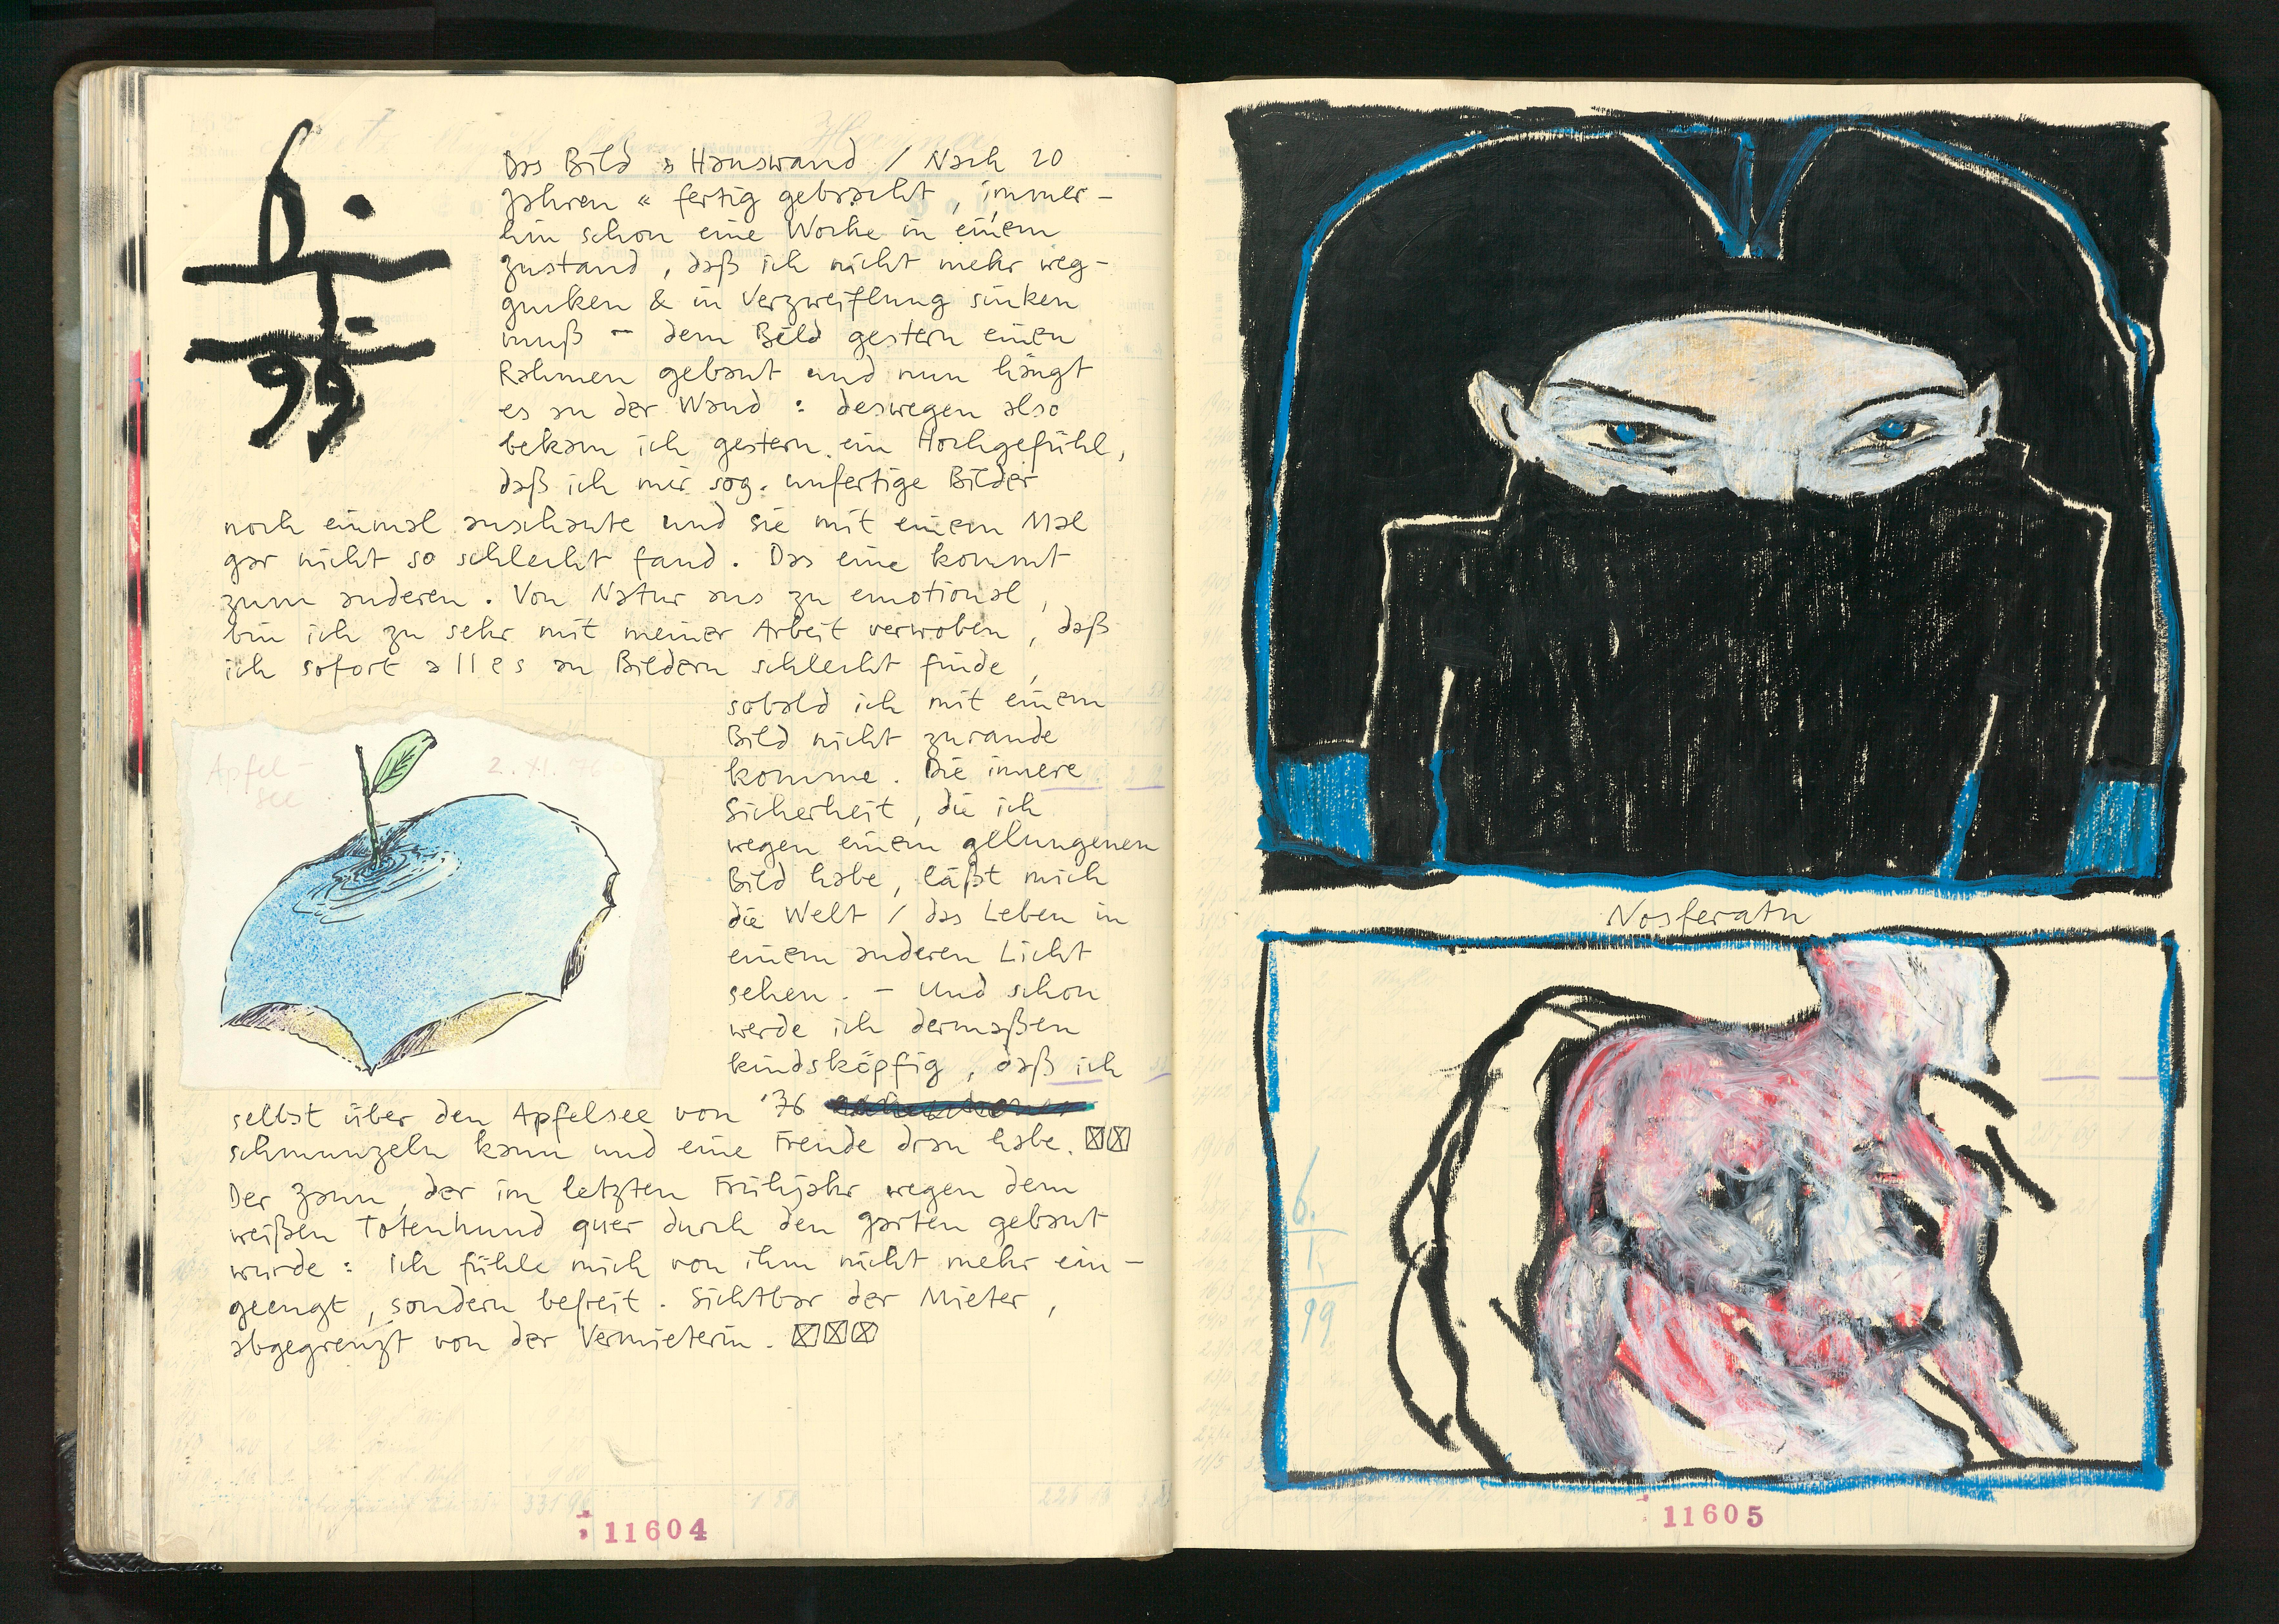 6.
I.
99
Das Bild » Hauswand / Nach 20
Jahren « fertig gebracht, immer-
hin schon eine Woche in einem
Zustand, daß ich nicht mehr weg-
gucken & in Verzweiflung sinken
muß – dem Bild gestern einen
Rahmen gebaut und nun hängt
es an der Wand : deswegen also
bekam ich gestern ein Hochgefühl,
daß ich mir sog. unfertige Bilder
noch einmal anschaute und sie mit einem Mal
gar nicht so schlecht fand. Das eine kommt
zum anderen. Von Natur aus zu emotional,
bin ich zu sehr mit meiner Arbeit verwoben, daß
ich sofort alles an Bildern schlecht finde,
sobald ich mit einem
Bild nicht zurande
komme. Die innere
Sicherheit, die ich
wegen einem gelungenen
Bild habe, läßt mich
die Welt / das Leben in
einem anderen Licht
sehen. – Und schon
werde ich dermaßen
kindsköpfig, daß ich
Apfel-
see
2. XI. 76
selbst über den Apfelsee von '76
schmunzeln kann und eine Freude dran habe.
Der Zaun, der im letzten Frühjahr wegen dem
weißen Totenhund quer durch den Garten gebaut
wurde : Ich fühle mich von ihm nicht mehr ein-
geengt, sondern befreit. Sichtbar der Mieter,
abgegrenzt von der Vermieterin.
11604
Nosferatu
6.
1.
99
11605